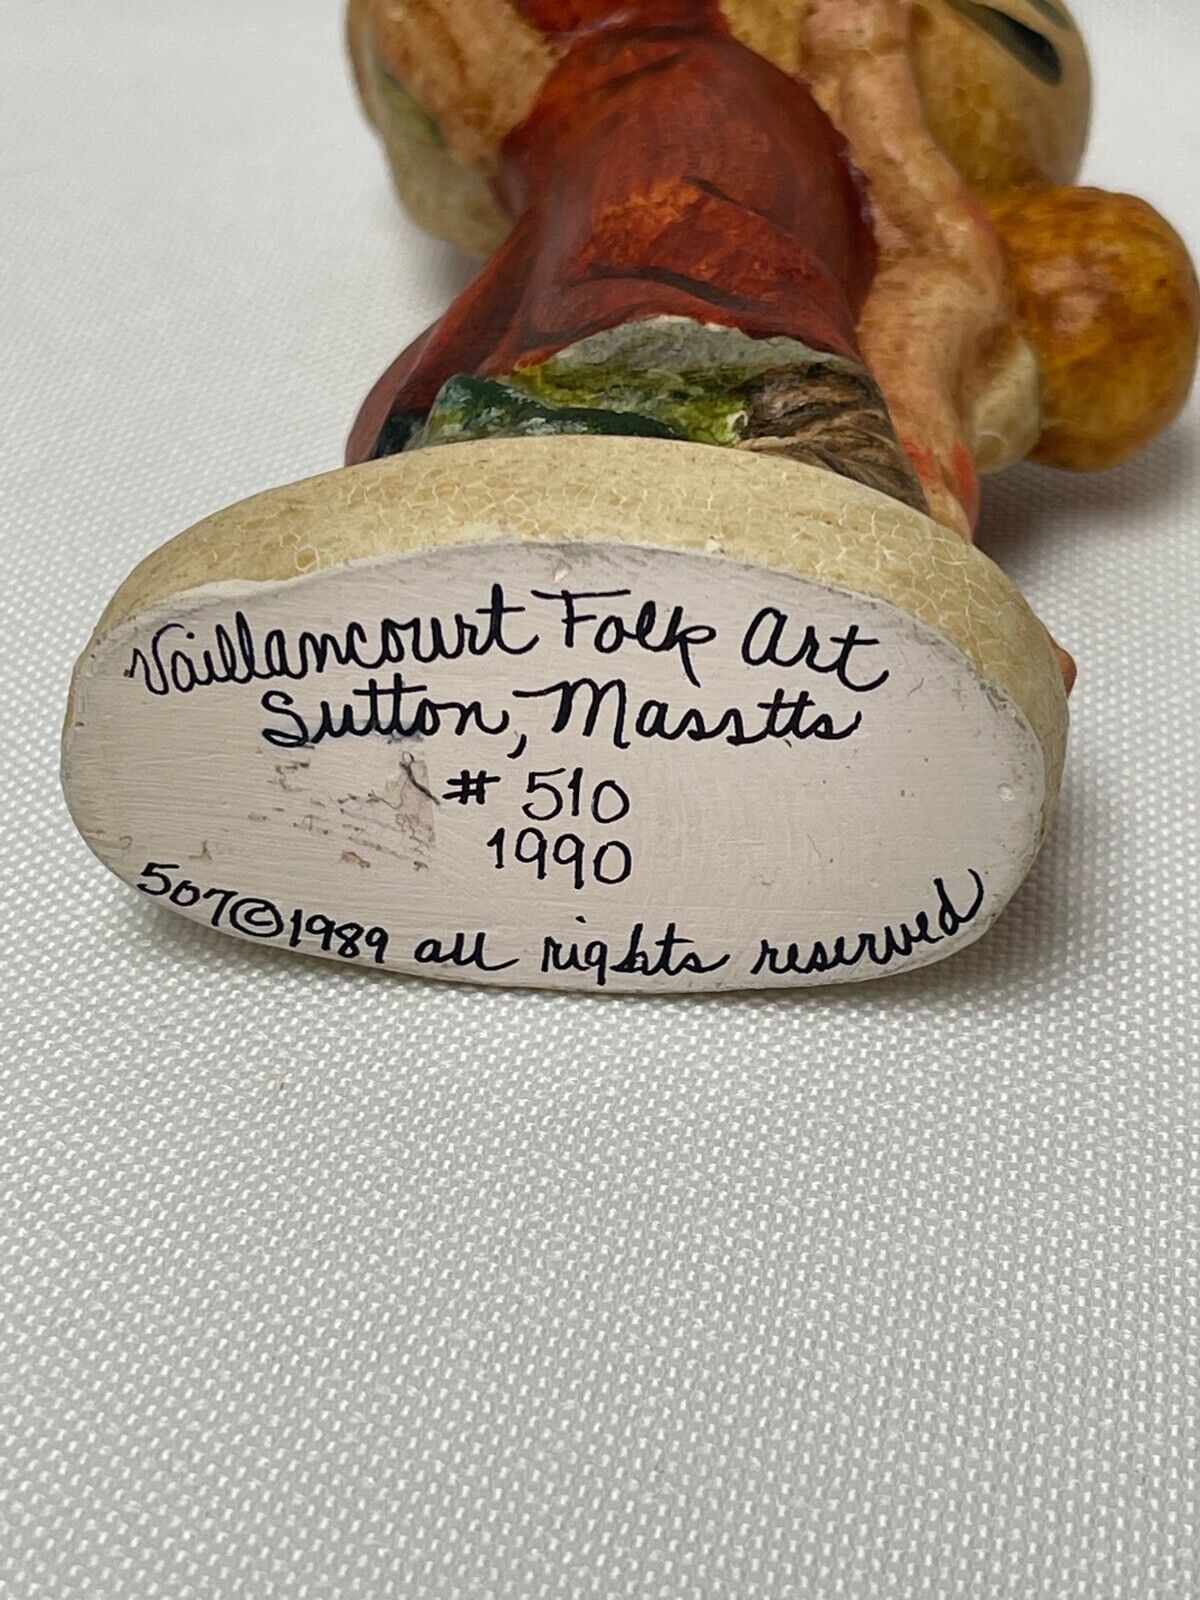 Vaillancourt Folk Art
Sutton, Masstts
# 510
1990
507©1989 all rights reserved